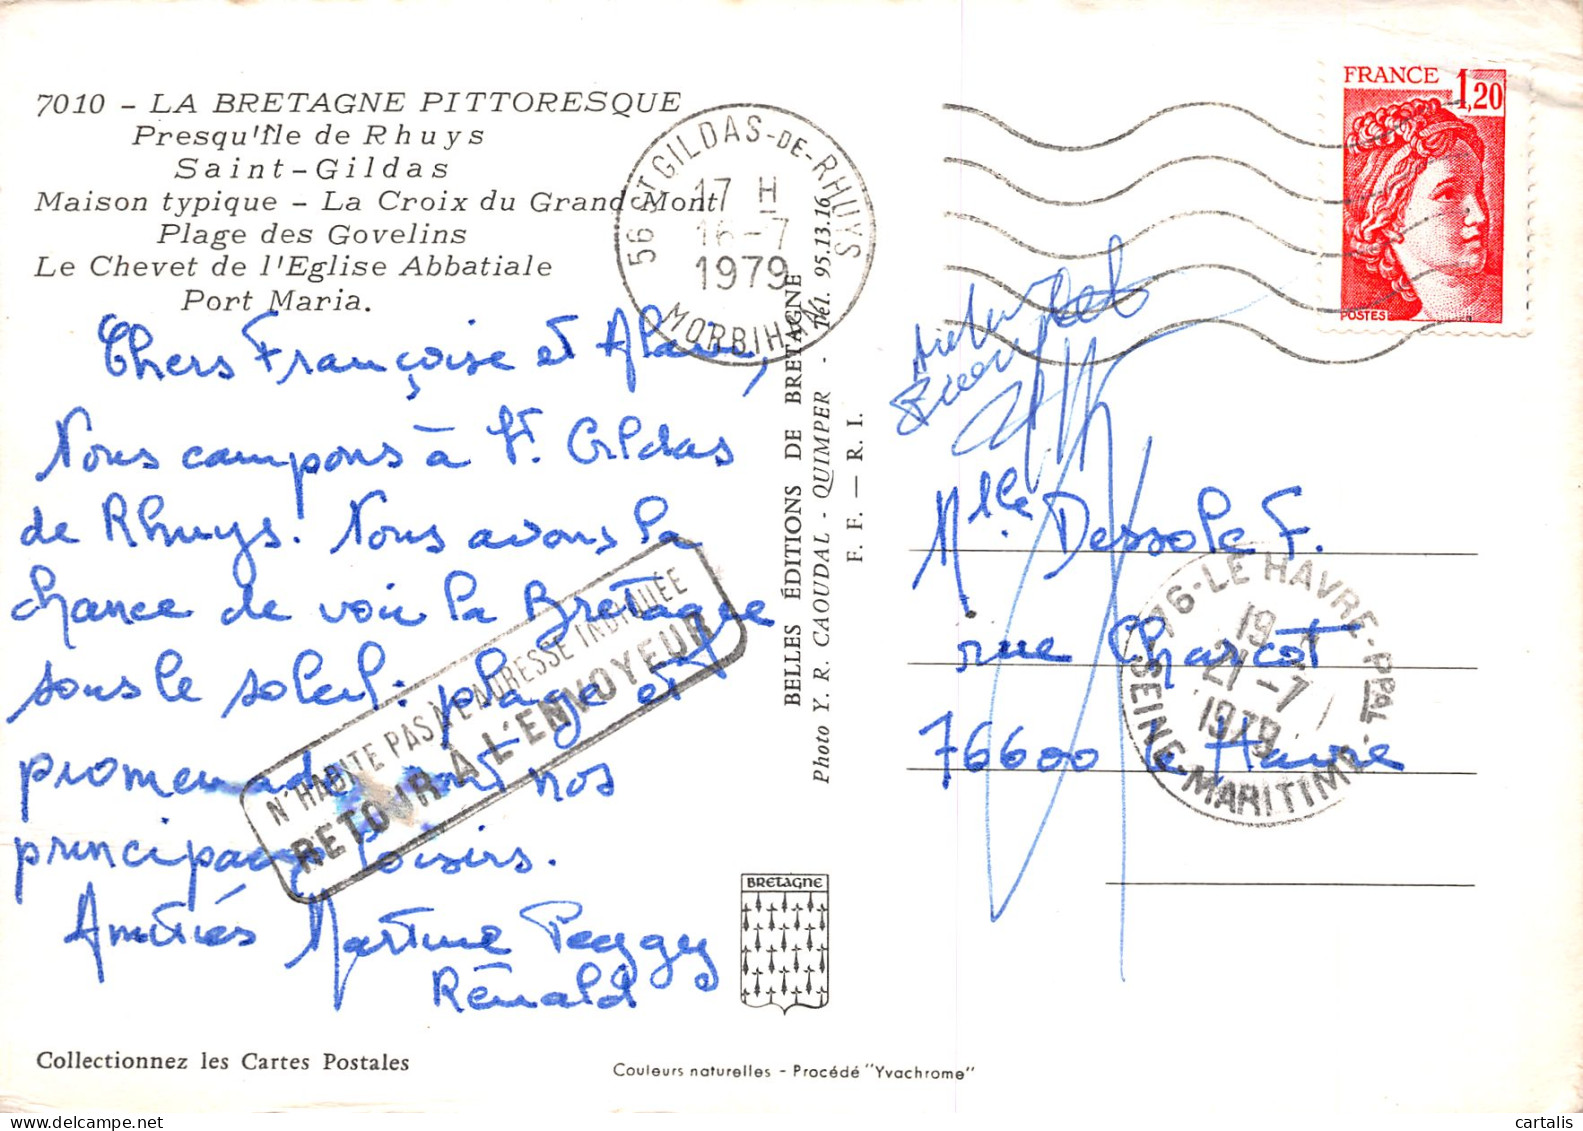 7010 - LA BRETAGNE PITTORESQUE
Presqu'Ile de Rhuys
Saint-Gildas
Maison typique - La Croix du Grand Mont
Plage des Govelins
Le Chevet de l'Eglise Abbatiale
Port Maria.
56 ST GILDAS-DE-RHUYS
17 H
16-7
1979
MORBIHAN
FRANCE 1,20
POSTES
Chers Françoise et Alain,
Nous campons à St. Gildas
de Rhuys. Nous avons la
chance de voir la Bretagne
sous le soleil : plage et
promenade sont nos
principaux loisirs.
Amitiés Martine Peggy
Rénald
N'HABITE PAS A L'ADRESSE INDIQUÉE
RETOUR A L'ENVOYEUR
BELLES ÉDITIONS DE BRETAGNE
Photo Y. R. CAOUDAL - QUIMPER - Tél. 95.13.16
F. F. — R. I.
Mlle Dessole F.
rue Charcot
76600 le Havre
76-LE HAVRE-PPAL
19
21-7
1979
SEINE-MARITIME
BRETAGNE
Collectionnez les Cartes Postales
Couleurs naturelles - Procédé "Yvachrome"
cartalis